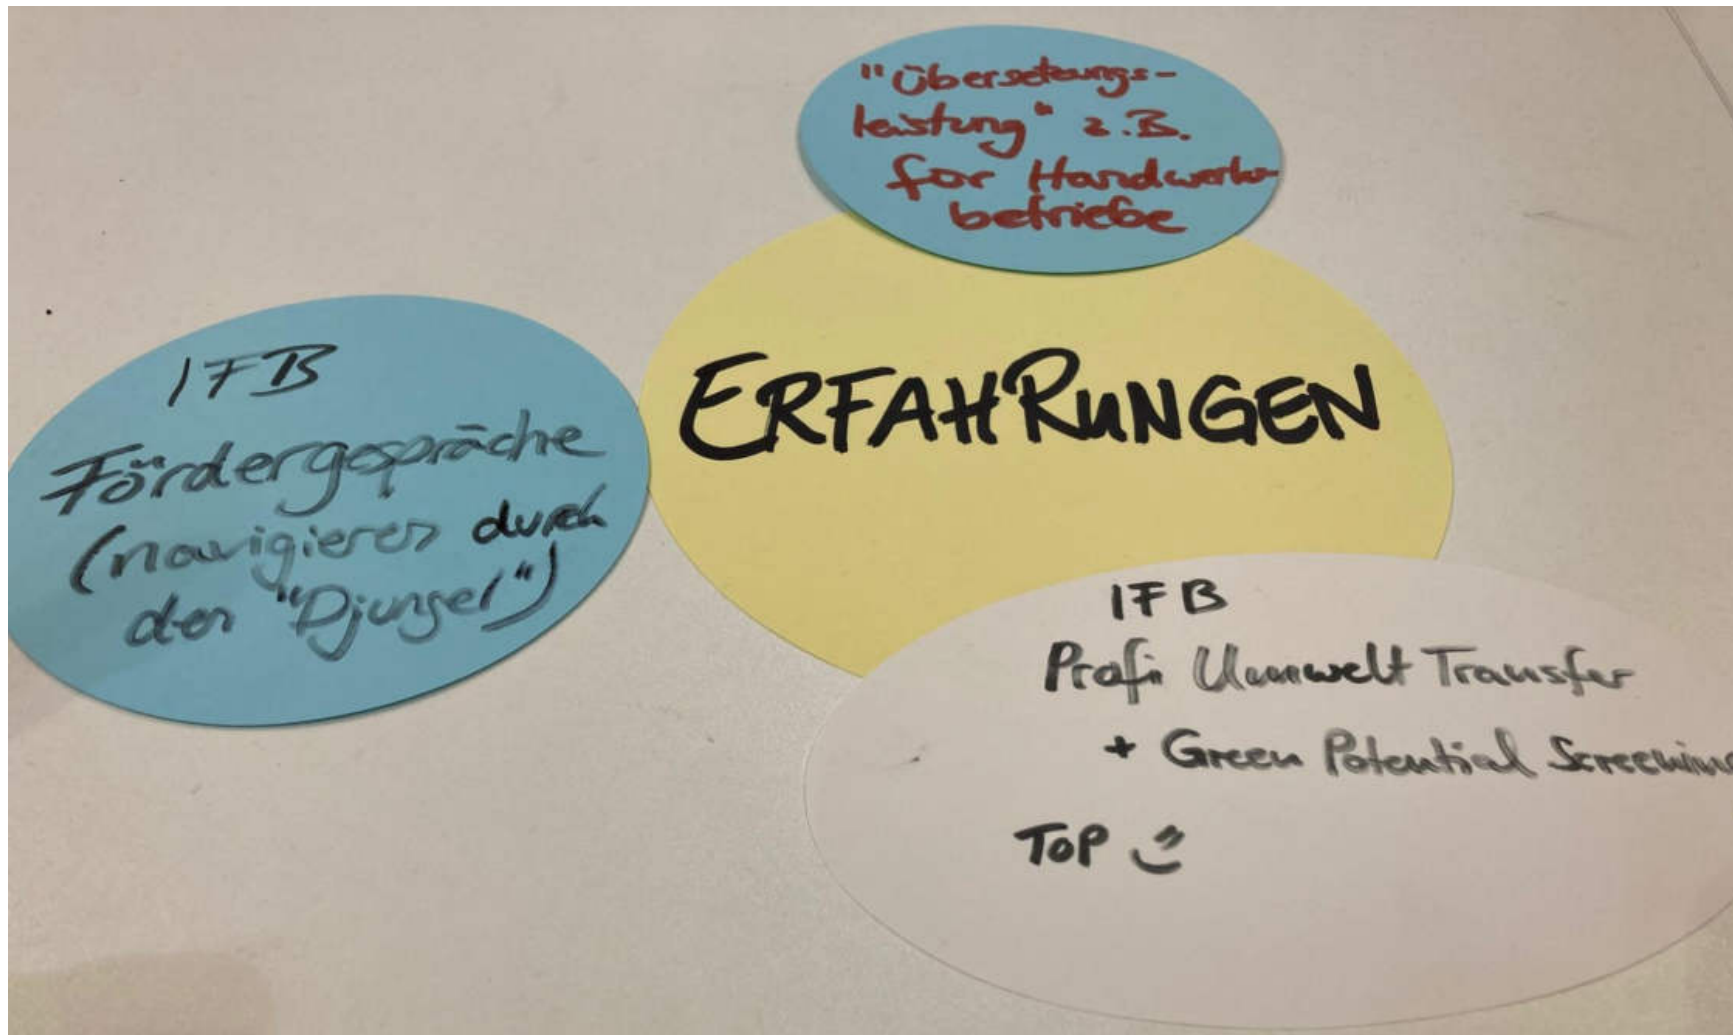 "Übersetzungs-
leistung" z.B.
für Handwerks-
betriebe
ERFAHRUNGEN
IFB
Fördergespräche
(navigieren durch
den "Djungel")
IFB
Profi Umwelt Transfer
+ Green Potential Screening
TOP